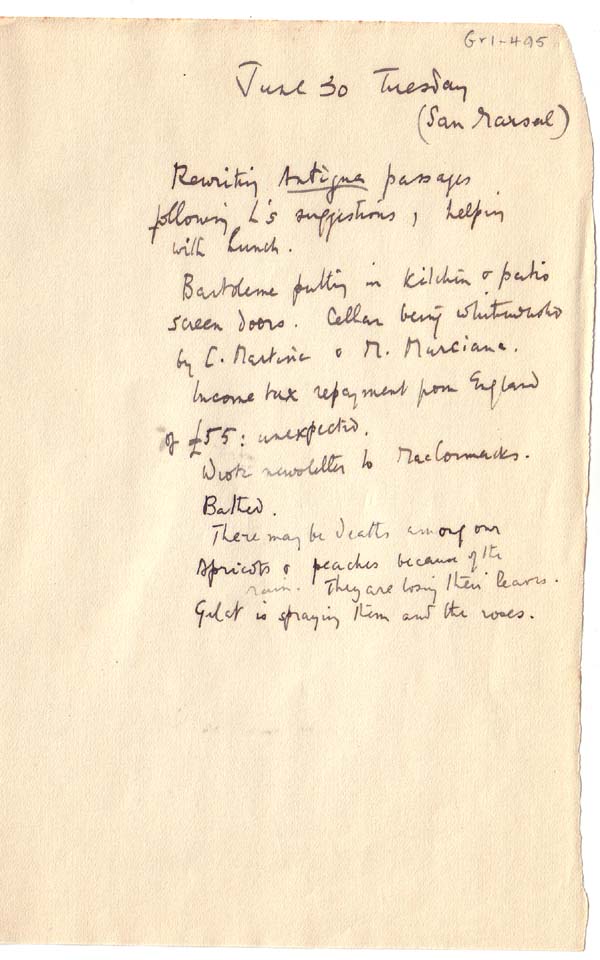 Gr1-495
June 30 Tuesday
(San Marsal)
Rewriting Antigua passages
following L's suggestions, helping
with lunch.
Bartolome putting in kitchen & patio
screen doors. Cellar being whitewashed
by C. Martina & M. Murciana.
Income tax repayment from England
of £55: unexpected.
Wrote newsletter to MacCormacks.
Bathed.
There may be deaths among our
apricots & peaches because of the
rain. They are losing their leaves.
Gelat is spraying them and the roses.